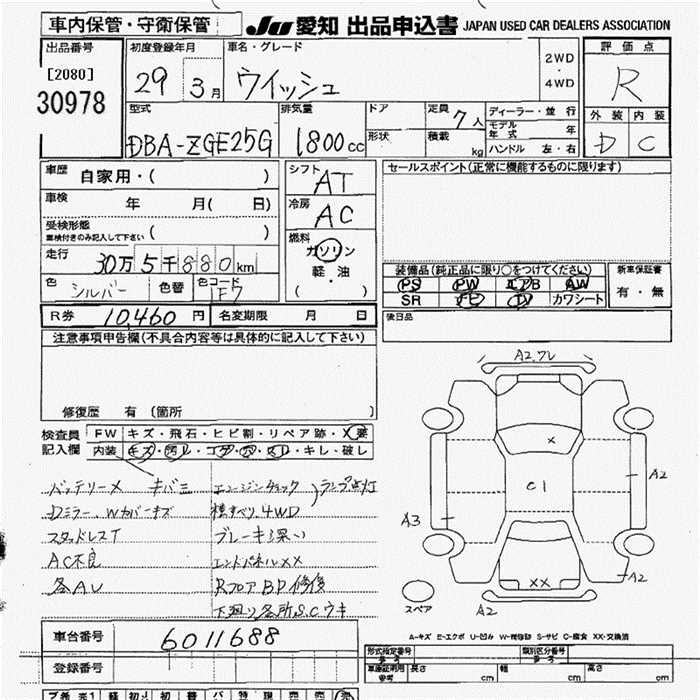 車内保管・守衛保管
JU 愛知 出品申込書 JAPAN USED CAR DEALERS ASSOCIATION
出品番号
[2080]
30978
初度登録年月
29 3月
車名・グレード
ウイッシュ
2WD
・
4WD
評価点
R
外装 内装
D C
型式
DBA-ZGE25G
排気量
1800cc
ドア
形状
定員 7人
積載 kg
ディーラー・並行
モデル年式 年
ハンドル 左・右
車歴 自家用・( )
車検 年 月( 日)
受検形態
車検付きのみ記入して下さい ( )
走行 30万5千880km
色 シルバー 色替 色コード F7
シフト AT
冷房 AC
燃料
ガソリン
軽・油
( )
セールスポイント(正常に機能するものに限ります)
装備品(純正品に限り○をつけてください)
PS PW エアB AW
SR ナビ TV カワシート
新車保証書
有・無
後日品
R券 10,460円 名変期限 月 日
注意事項申告欄(不具合内容等は具体的に記入して下さい)
修復歴 有 (箇所 )
検査員
記入欄
FW キズ・飛石・ヒビ割・リペア跡・X要
内装 キズ・汚レ・コゲ・穴・スレ・キレ・破レ
バッテリーメ キバミ
Dミラー、Wカバーキズ
スタッドレスT
AC不良
各AU
エンジンチェック
横すべり、4WD
ランプ点灯
ブレーキ深い
エンドパネルXX
RフロアBP修復
下廻り各所S.Cウキ
A2.ワレ
X
C1
A2
A3
XX
A2
A2
スペア
A-キズ E-エクボ U-凹み W-補修跡 S-サビ C-腐食 XX-交換済
車台番号 6011688
登録番号
形式指定番号
類別区分番号
車庫証明用参考
長さ cm
幅 cm
高さ cm